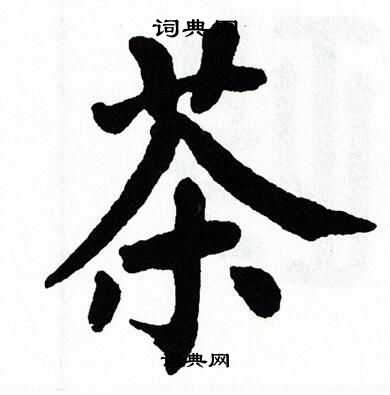 词典网
茶
词典网